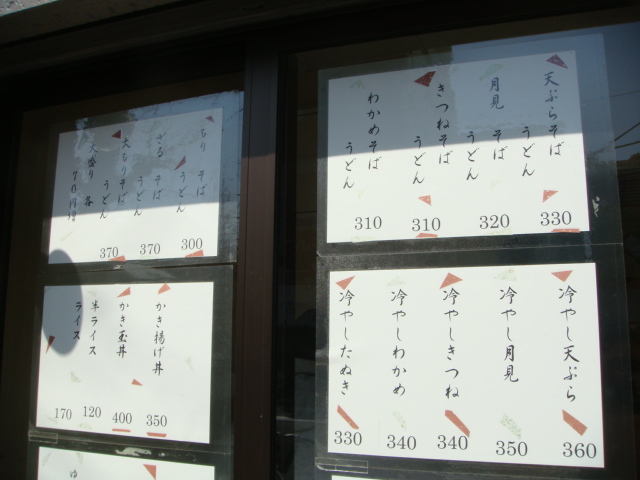 天ぷらそば
うどん
330
月見
そば
うどん
320
きつねそば
うどん
310
わかめそば
うどん
310
もり
そば
うどん
300
ざる
そば
うどん
370
大もりそば
うどん
370
大盛り
各
70円増
冷やし天ぷら
360
冷やし月見
350
冷やしきつね
340
冷やしわかめ
340
冷やしたぬき
330
かき揚げ丼
350
かき玉丼
400
半ライス
120
ライス
170
ゆ